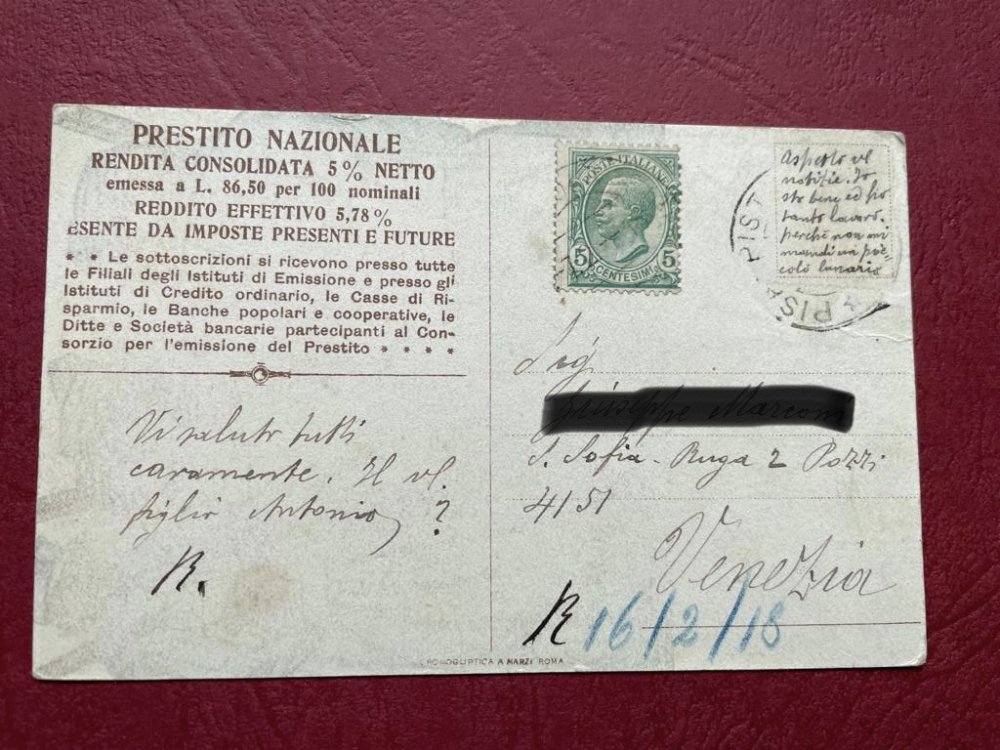 PRESTITO NAZIONALE
RENDITA CONSOLIDATA 5 % NETTO
emessa a L. 86,50 per 100 nominali
REDDITO EFFETTIVO 5,78 %
ESENTE DA IMPOSTE PRESENTI E FUTURE
* * Le sottoscrizioni si ricevono presso tutte
le Filiali degli Istituti di Emissione e presso gli
Istituti di Credito ordinario, le Casse di Ri-
sparmio, le Banche popolari e cooperative, le
Ditte e Società bancarie partecipanti al Con-
sorzio per l'emissione del Prestito * * * *
Vi saluto tutti
caramente. Il vl.
figlio Antonio ?
R.
POSTE ITALIANE
5 5
CENTESIMI
Aspetto vl
notizie. Io
sto bene ed ho
tanto lavoro.
perchè non mi
mandi un pic-
colo lunario
PIST
PISA
Sig
S. Sofia - Ruga 2 Pozzi
4151
Venezia
R 16/2/18
CROMOGLIPTICA A MARZI ROMA